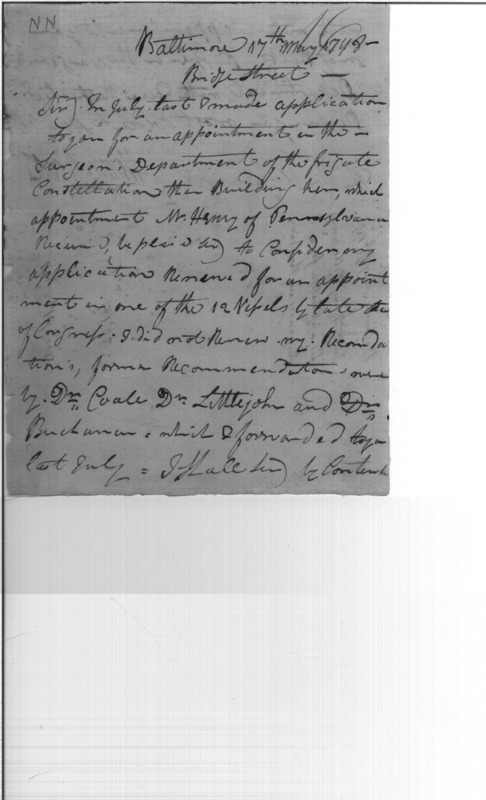 NN
Baltimore 17th May 1798 -
Bridge Street -
Sir) In July last I made application
to you for an appointment in the -
Surgeons Department of the frigate
Constellation then Building here, which
appointment Mr Henry of Pennsylvania
Received, be pleased Sir) to Consider my
application Renewed for an appoint
ment in one of the 12 Vessels by late Act
of Congress; I did not Renew my
tions, former Recommendations were
by. Dr. Coale Dr. Littlejohn and Dr.
Buchanan = which I forwarded to you
last July = I shall Sir) by Contents